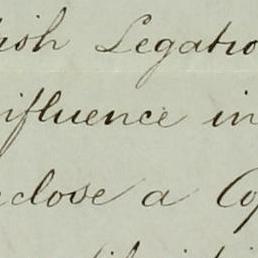 ish Legatio
nfluence in
nclose a Cop